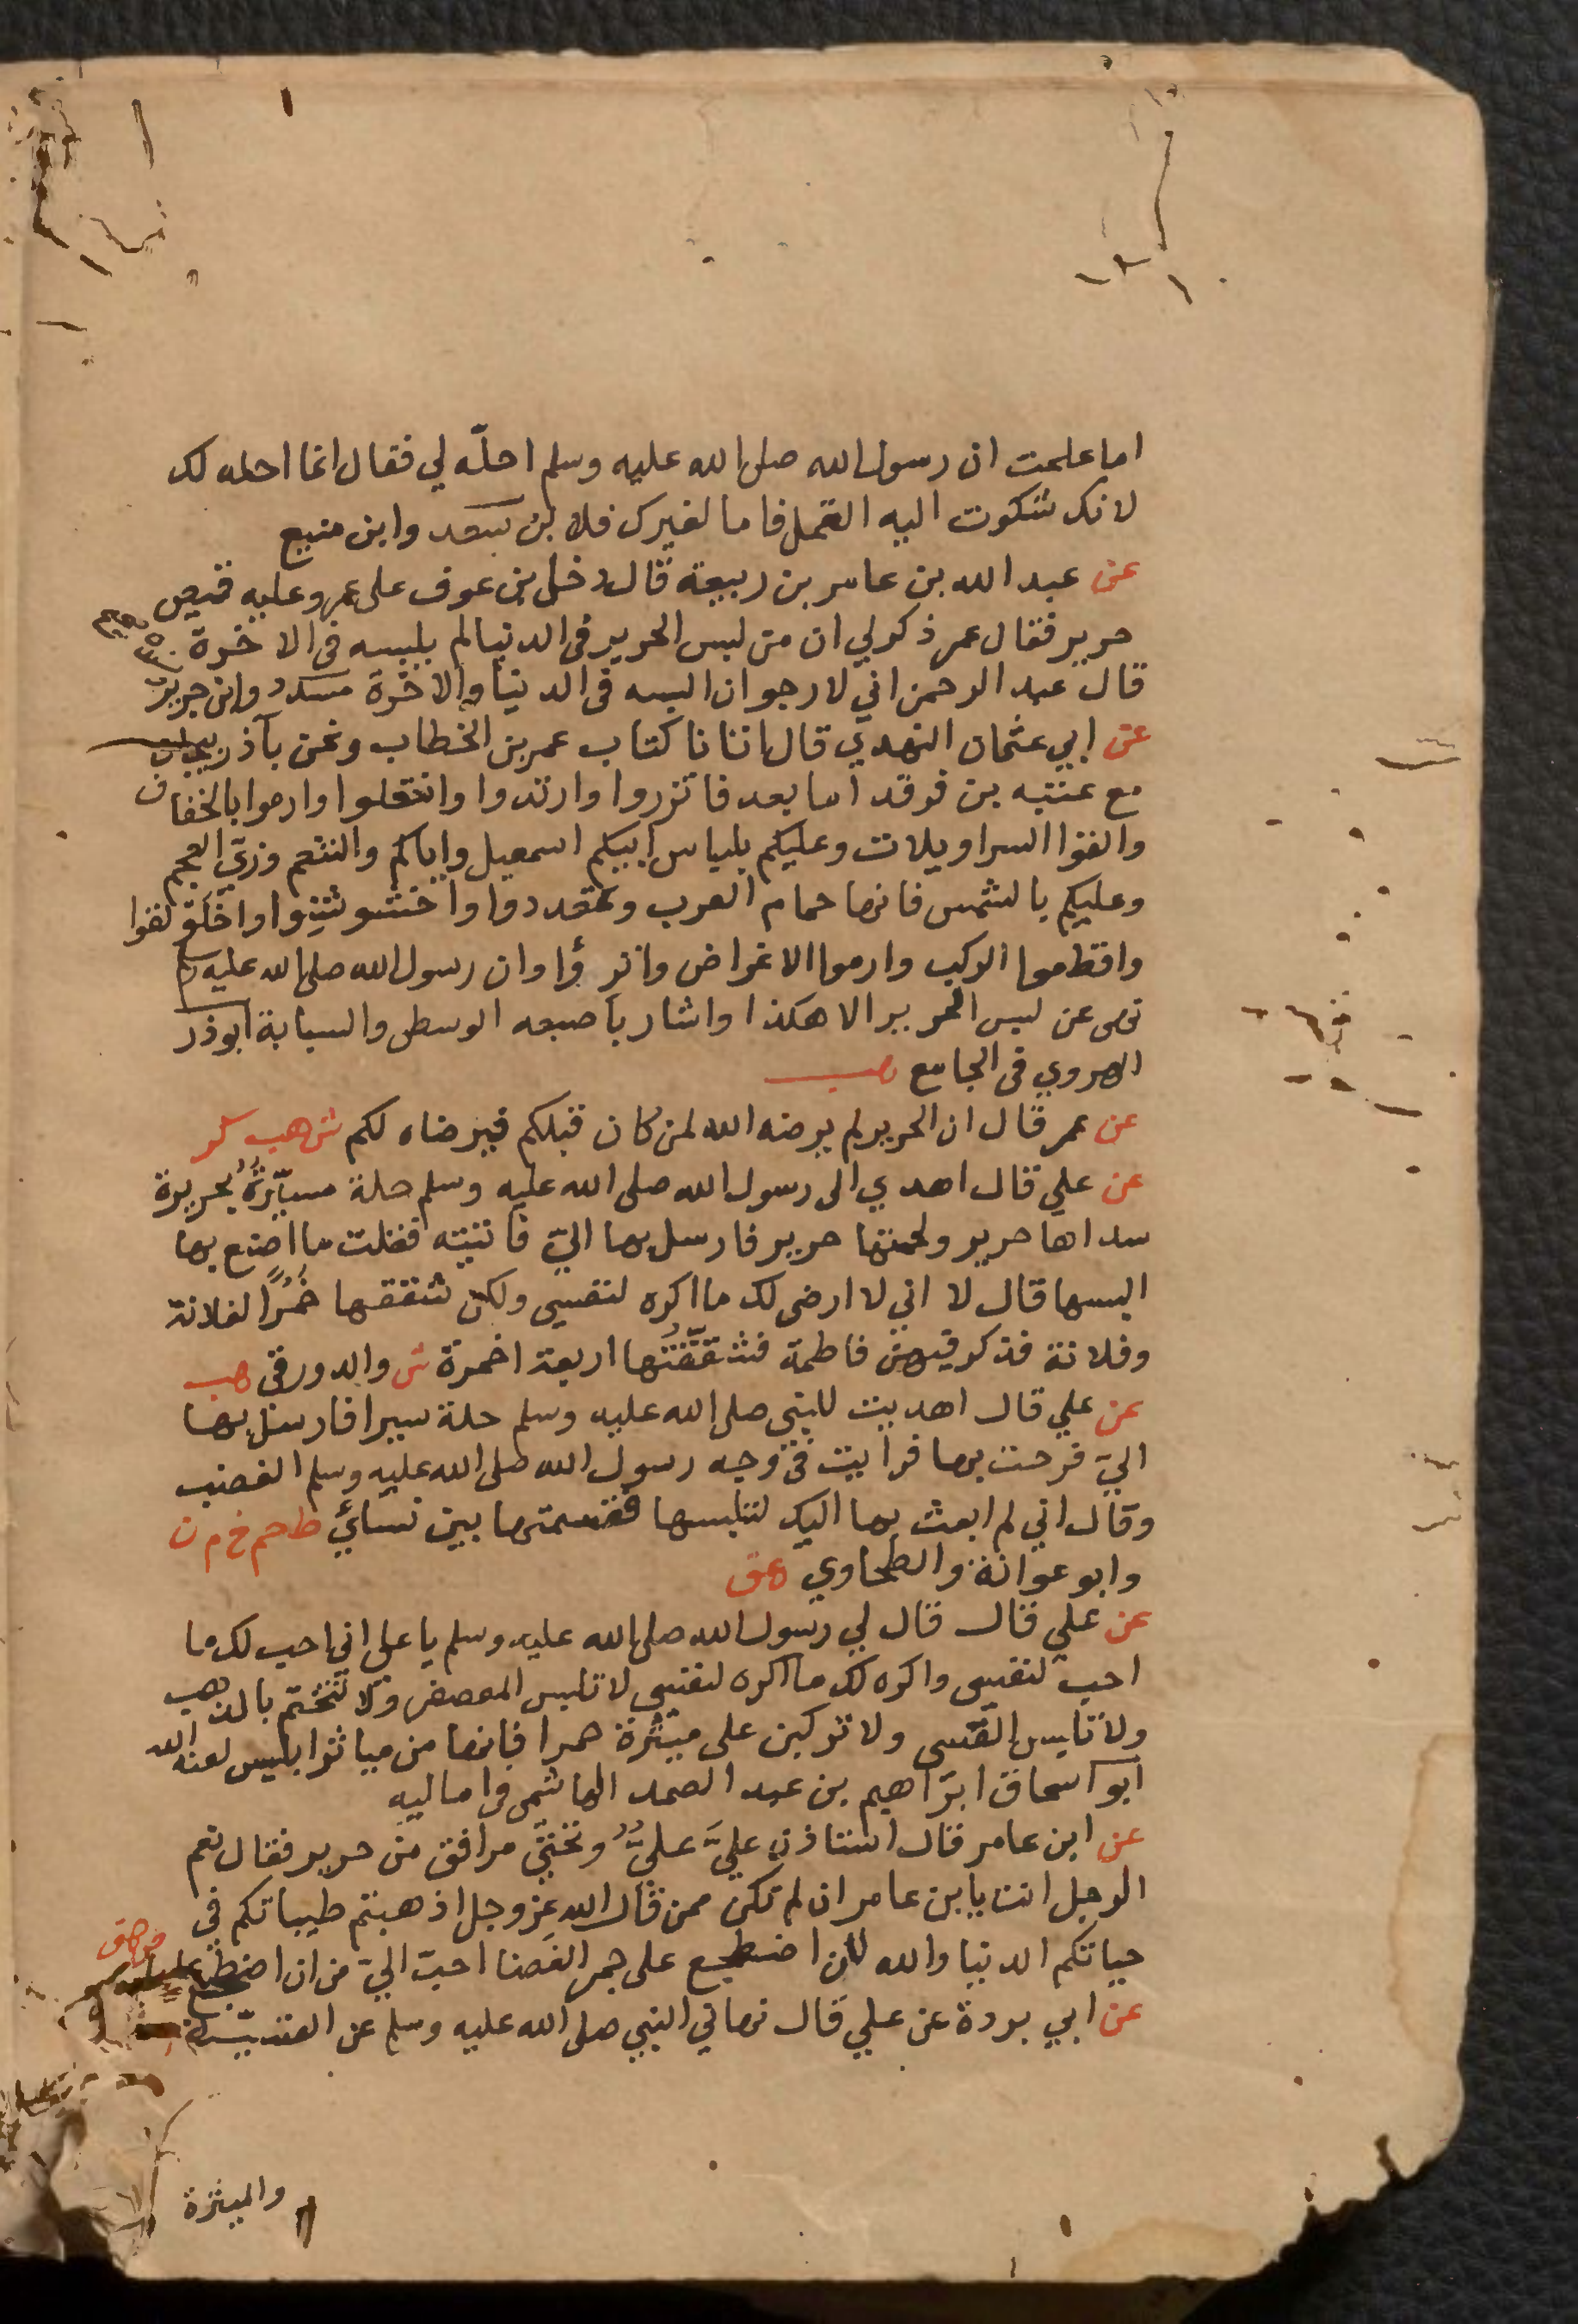 اما علمت ان رسول الله صلى الله عليه وسلم احلّه لي فقال انما احله لك
لانك شكوت اليه القمل فاما لغيرك فلا ابن سعد وابن منيع
عن عبد الله بن عامر بن ربيعة قال دخل بن عوف على عمر وعليه قميص
حرير فقال عمر ذكر لي ان من لبس الحرير في الدنيا لم يلبسه في الاخرة
قال عبد الرحمن اني لارجو ان البسه في الدنيا والاخرة مسدد وابن جرير
عن ابي عثمان النهدي قال اتانا كتاب عمر بن الخطاب ونحن بآذربيجان
مع عتبه بن فرقد اما بعد فاتزروا وارتدوا وانتعلوا وارموا بالخفاف
والقوا السراويلات وعليكم بلباس ابيكم اسمعيل واياكم والتنعم وزيّ العجم
وعليكم بالشمس فانها حمام العرب وتمعددوا واخشوشنوا واخلولقوا
واقطعوا الركب وارموا الاغراض وانزؤا وان رسول الله صلى الله عليه وسلم
نهى عن لبس الحرير الا هكذا واشار باصبعه الوسطى والسبابة ابوذر
الهروي في الجامع هب
عن عمر قال ان الحرير لم يرضه الله لمن كان قبلكم فيرضاه لكم ش هب كر
عن علي قال اهدي الى رسول الله صلى الله عليه وسلم حلة مسيّرة بحريرة
سداها حرير ولحمتها حرير فارسل بها اليّ فاتيته فقلت ما اصنع بها
البسها قال لا اني لا ارضى لك ما اكره لنفسي ولكن شققها خمُرًا لفلانة
وفلانة فذكر فيهن فاطمة فشققتُها اربعة اخمرة ش والدورقي هب
عن علي قال اهديت للنبي صلى الله عليه وسلم حلة سيرا فارسل بها
اليّ فرحت بها فرايت في وجه رسول الله صلى الله عليه وسلم الغضب
وقال اني لم ابعث بها اليك لتلبسها فقسمتها بين نسائي ط حم خ م ن
وابو عوانة والطحاوي هق
عن علي قال قال لي رسول الله صلى الله عليه وسلم يا على اني احب لك ما
احب لنفسي واكره لك ما اكره لنفسي لا تلبس المعصفر ولا تتختم بالذهب
ولا تلبس القسى ولا تركبن على ميثرة حمرا فانها من مياثر ابليس لعنه الله
ابو اسحاق ابراهيم بن عبد الصمد الهاشمي في اماليه
عن ابن عامر قال استاذن عليَّ عليٌّ وتحتي مرافق من حرير فقال نعم
الرجل انت يا بن عامر ان لم تكن ممن قال الله عز وجل اذهبتم طيباتكم في
حياتكم الدنيا والله لان اضطجع على جمر الغضا احبّ اليّ من ان اضطجع عليها
عن ابي بردة عن علي قال نهاني النبي صلى الله عليه وسلم عن القسّيّة
والميثرة